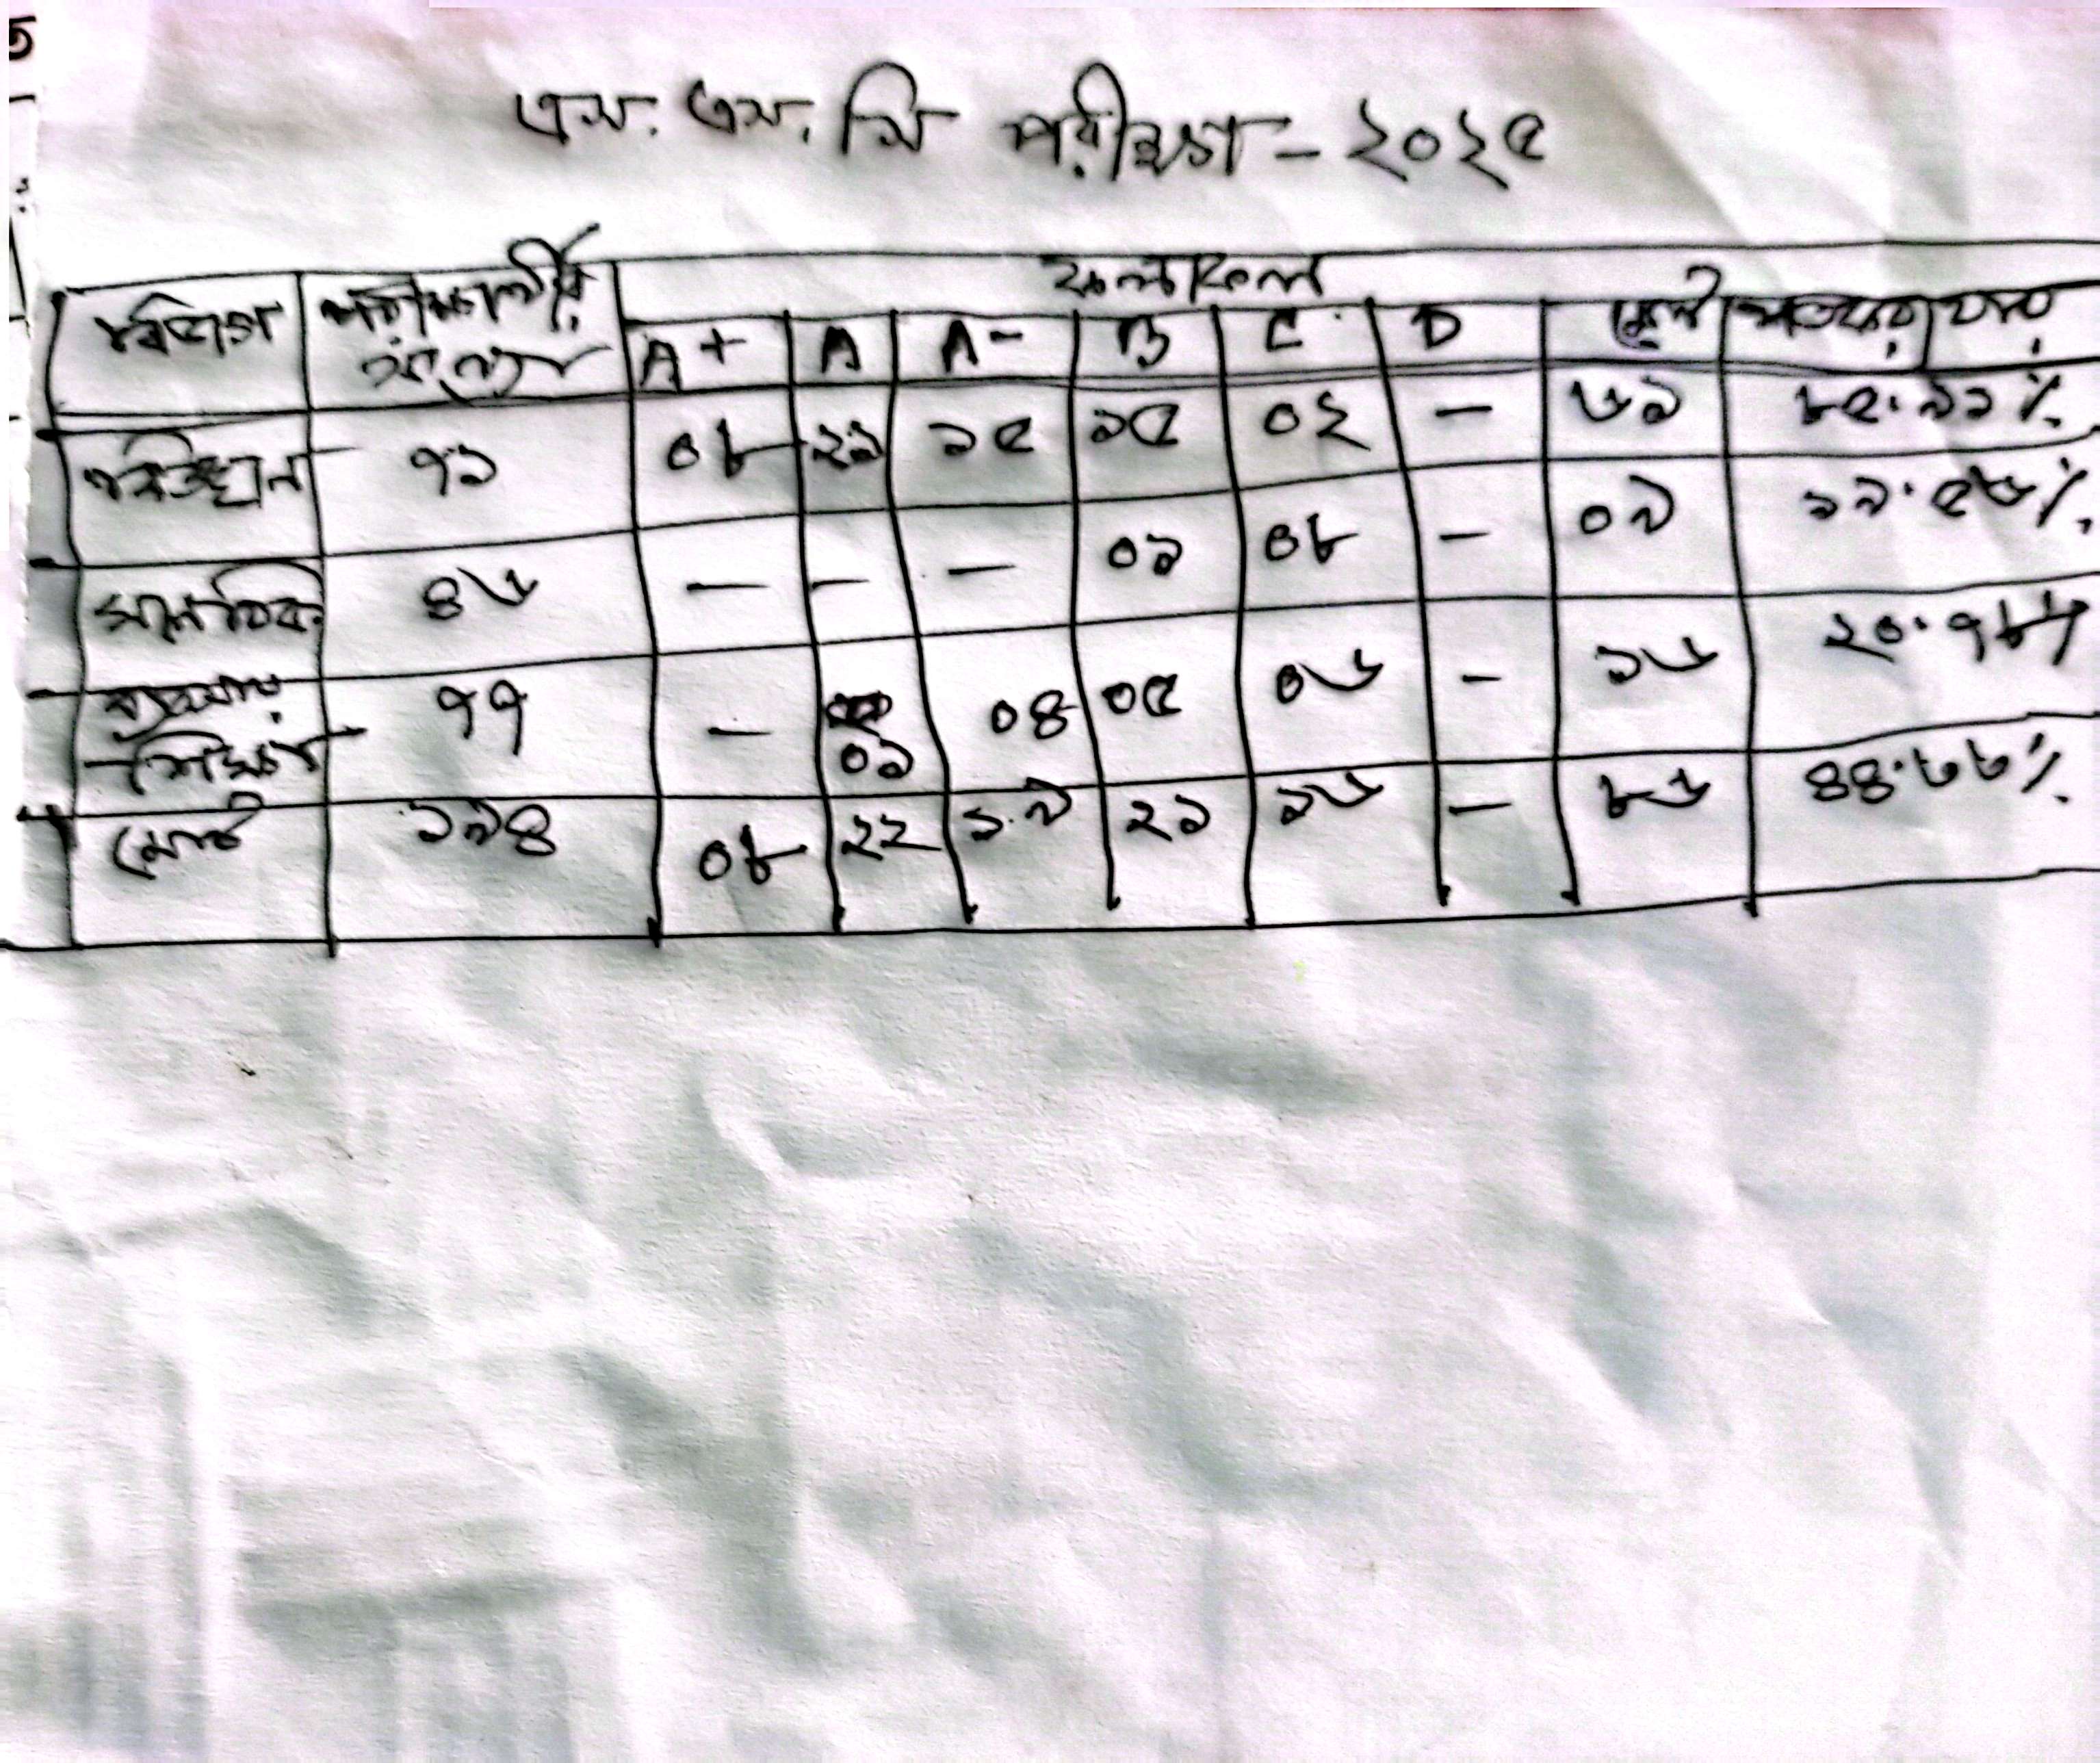 এস. এস. সি পরীক্ষা - ২০২৫
বিভাগ পরীক্ষার্থীর সংখ্যা ফলাফল
A+ A A- B C D মোট পাশের হার
বিজ্ঞান ৭১ ০৮ ২১ ১৫ ১৫ ০২ — ৬১ ৮৫.৯১%
মানবিক ৪৬ — — — ০১ ০৮ — ০৯ ১৯.৫৬%
ব্যবসায় শিক্ষা ৭৭ — ০১ ০৪ ০৫ ০৬ — ১৬ ২০.৭৮%
মোট ১৯৪ ০৮ ২২ ১৯ ২১ ১৬ — ৮৬ ৪৪.৮৮%